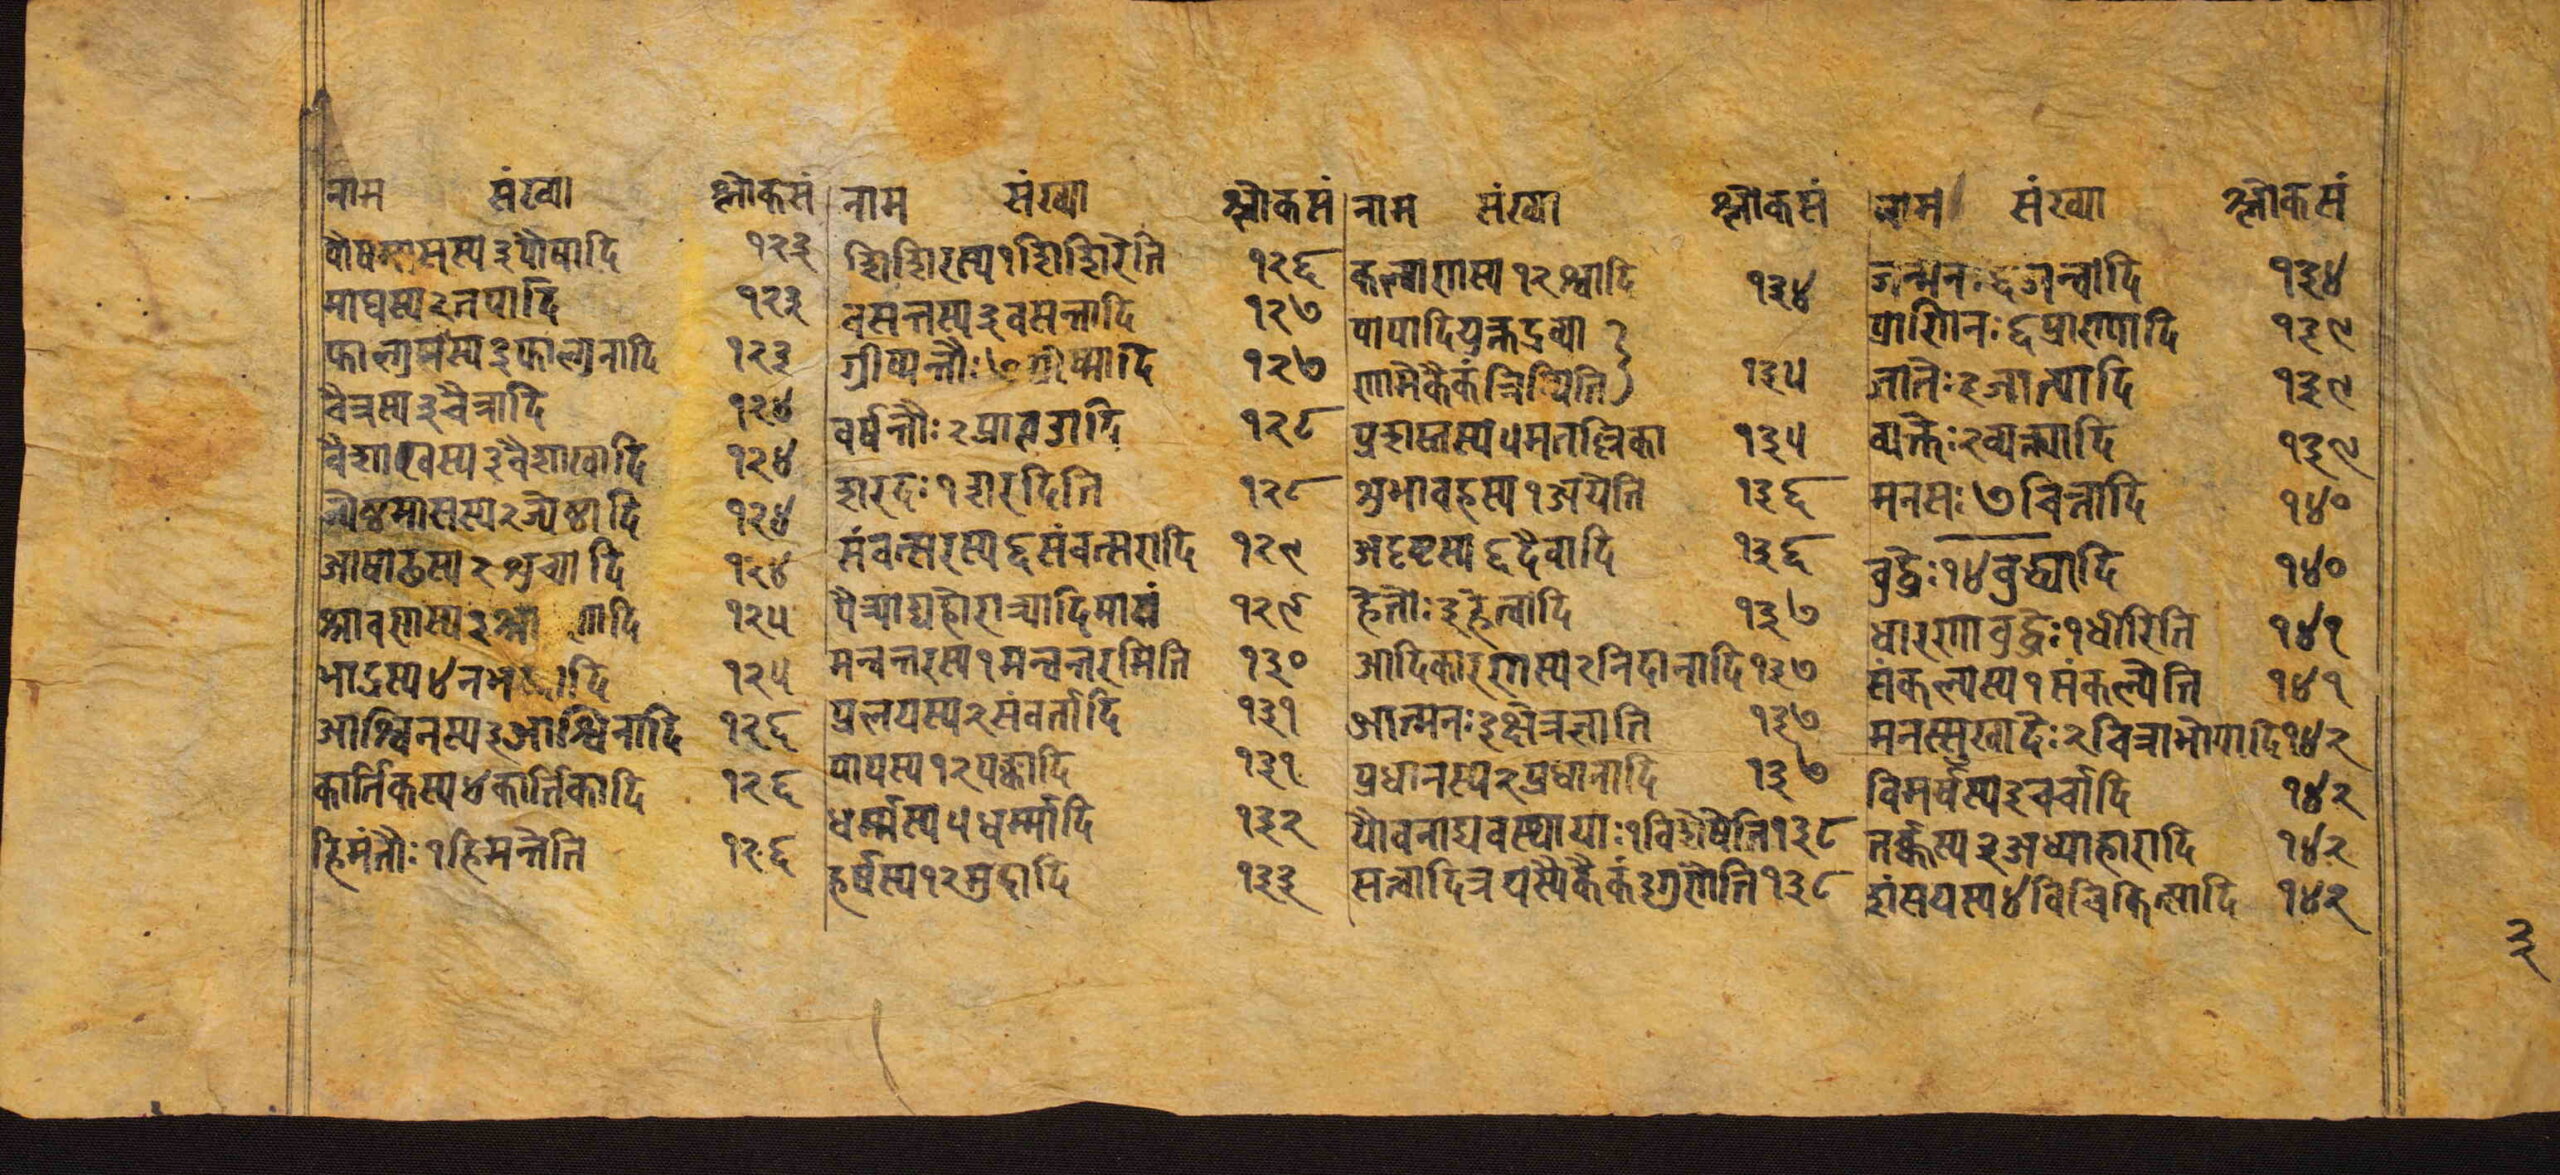 नाम संख्या श्लोकसं
पौषमासस्य ३ पौषादि १२३
माघस्य २ तपादि १२३
फाल्गुनस्य ३ फाल्गुनादि १२३
चैत्रस्य ३ चैत्रादि १२४
वैशाखस्य ३ वैशाखादि १२४
ज्यैष्ठमासस्य २ ज्यैष्ठादि १२४
आषाढस्य २ शुच्यादि १२४
श्रावणस्य ३ श्रा णादि १२५
भाद्रस्य ४ नभ दि १२५
आश्विनस्य ३ आश्विनादि १२६
कार्त्तिकस्य ४ कार्त्तिकादि १२६
हिमंर्तौः १ हिमन्तेति १२६
नाम संख्या श्लोकसं
शिशिरस्य १ शिशिरेति १२६
वसन्तस्य ३ वसन्तादि १२७
ग्रीष्मर्त्तौः ७ ग्रीष्मादि १२७
वर्षर्त्तौः २ प्रावृडादि १२८
शरदः १ शरदिति १२८
संवत्सरस्य ६ संवत्सरादि १२९
पैत्र्याद्यहोरात्र्यादिमानं १२९
मन्वन्तरस्य १ मन्वन्तरमिति १३०
प्रलयस्य २ संवर्तादि १३१
पापस्य १२ पङ्कादि १३१
धर्म्मस्य ५ धर्म्मादि १३२
हर्षस्य १२ मुदादि १३३
नाम संख्या श्लोकसं
कल्याणस्य १२ श्वादि १३४
पापादियुक्तद्रव्या
णामेकैकं त्रिष्विति १३५
प्रशस्तस्य ५ मतल्लिका १३५
शुभावहस्य १ अयेति १३६
अदृष्टस्य ६ दैवादि १३६
हेतोः ३ हेत्वादि १३७
आदिकारणस्य २ निदानादि १३७
आत्मनः ३ क्षेत्रज्ञाति १३७
प्रधानस्य २ प्रधानादि १३७
यौवनाद्यवस्थायाः १ विशेषेति १३८
सत्वादित्रयस्यैकैकं ३ गुणेति १३८
नाम संख्या श्लोकसं
जन्मनः ६ जन्वादि १३४
प्राणिनः ६ प्राण्यादि १३९
जातेः ३ जात्यादि १३९
व्यक्तेः २ व्यक्त्यादि १३९
मनसः ७ चित्तादि १४०
बुद्धेः १४ बुद्ध्यादि १४०
धारणाबुद्धेः १ धीरिति १४१
संकल्पस्य १ संकल्पेति १४१
मनस्सुखादेः २ चित्राभोगादि १४२
विमर्षस्य ३ चर्चादि १४२
तर्कस्य ३ अध्याहारादि १४२
शंसयस्य ४ विचिकित्सादि १४२
३